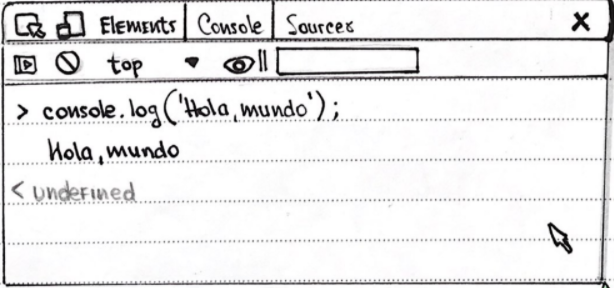 Elements Console Sources
top
> console.log('Hola,mundo');
Hola,mundo
< undefined